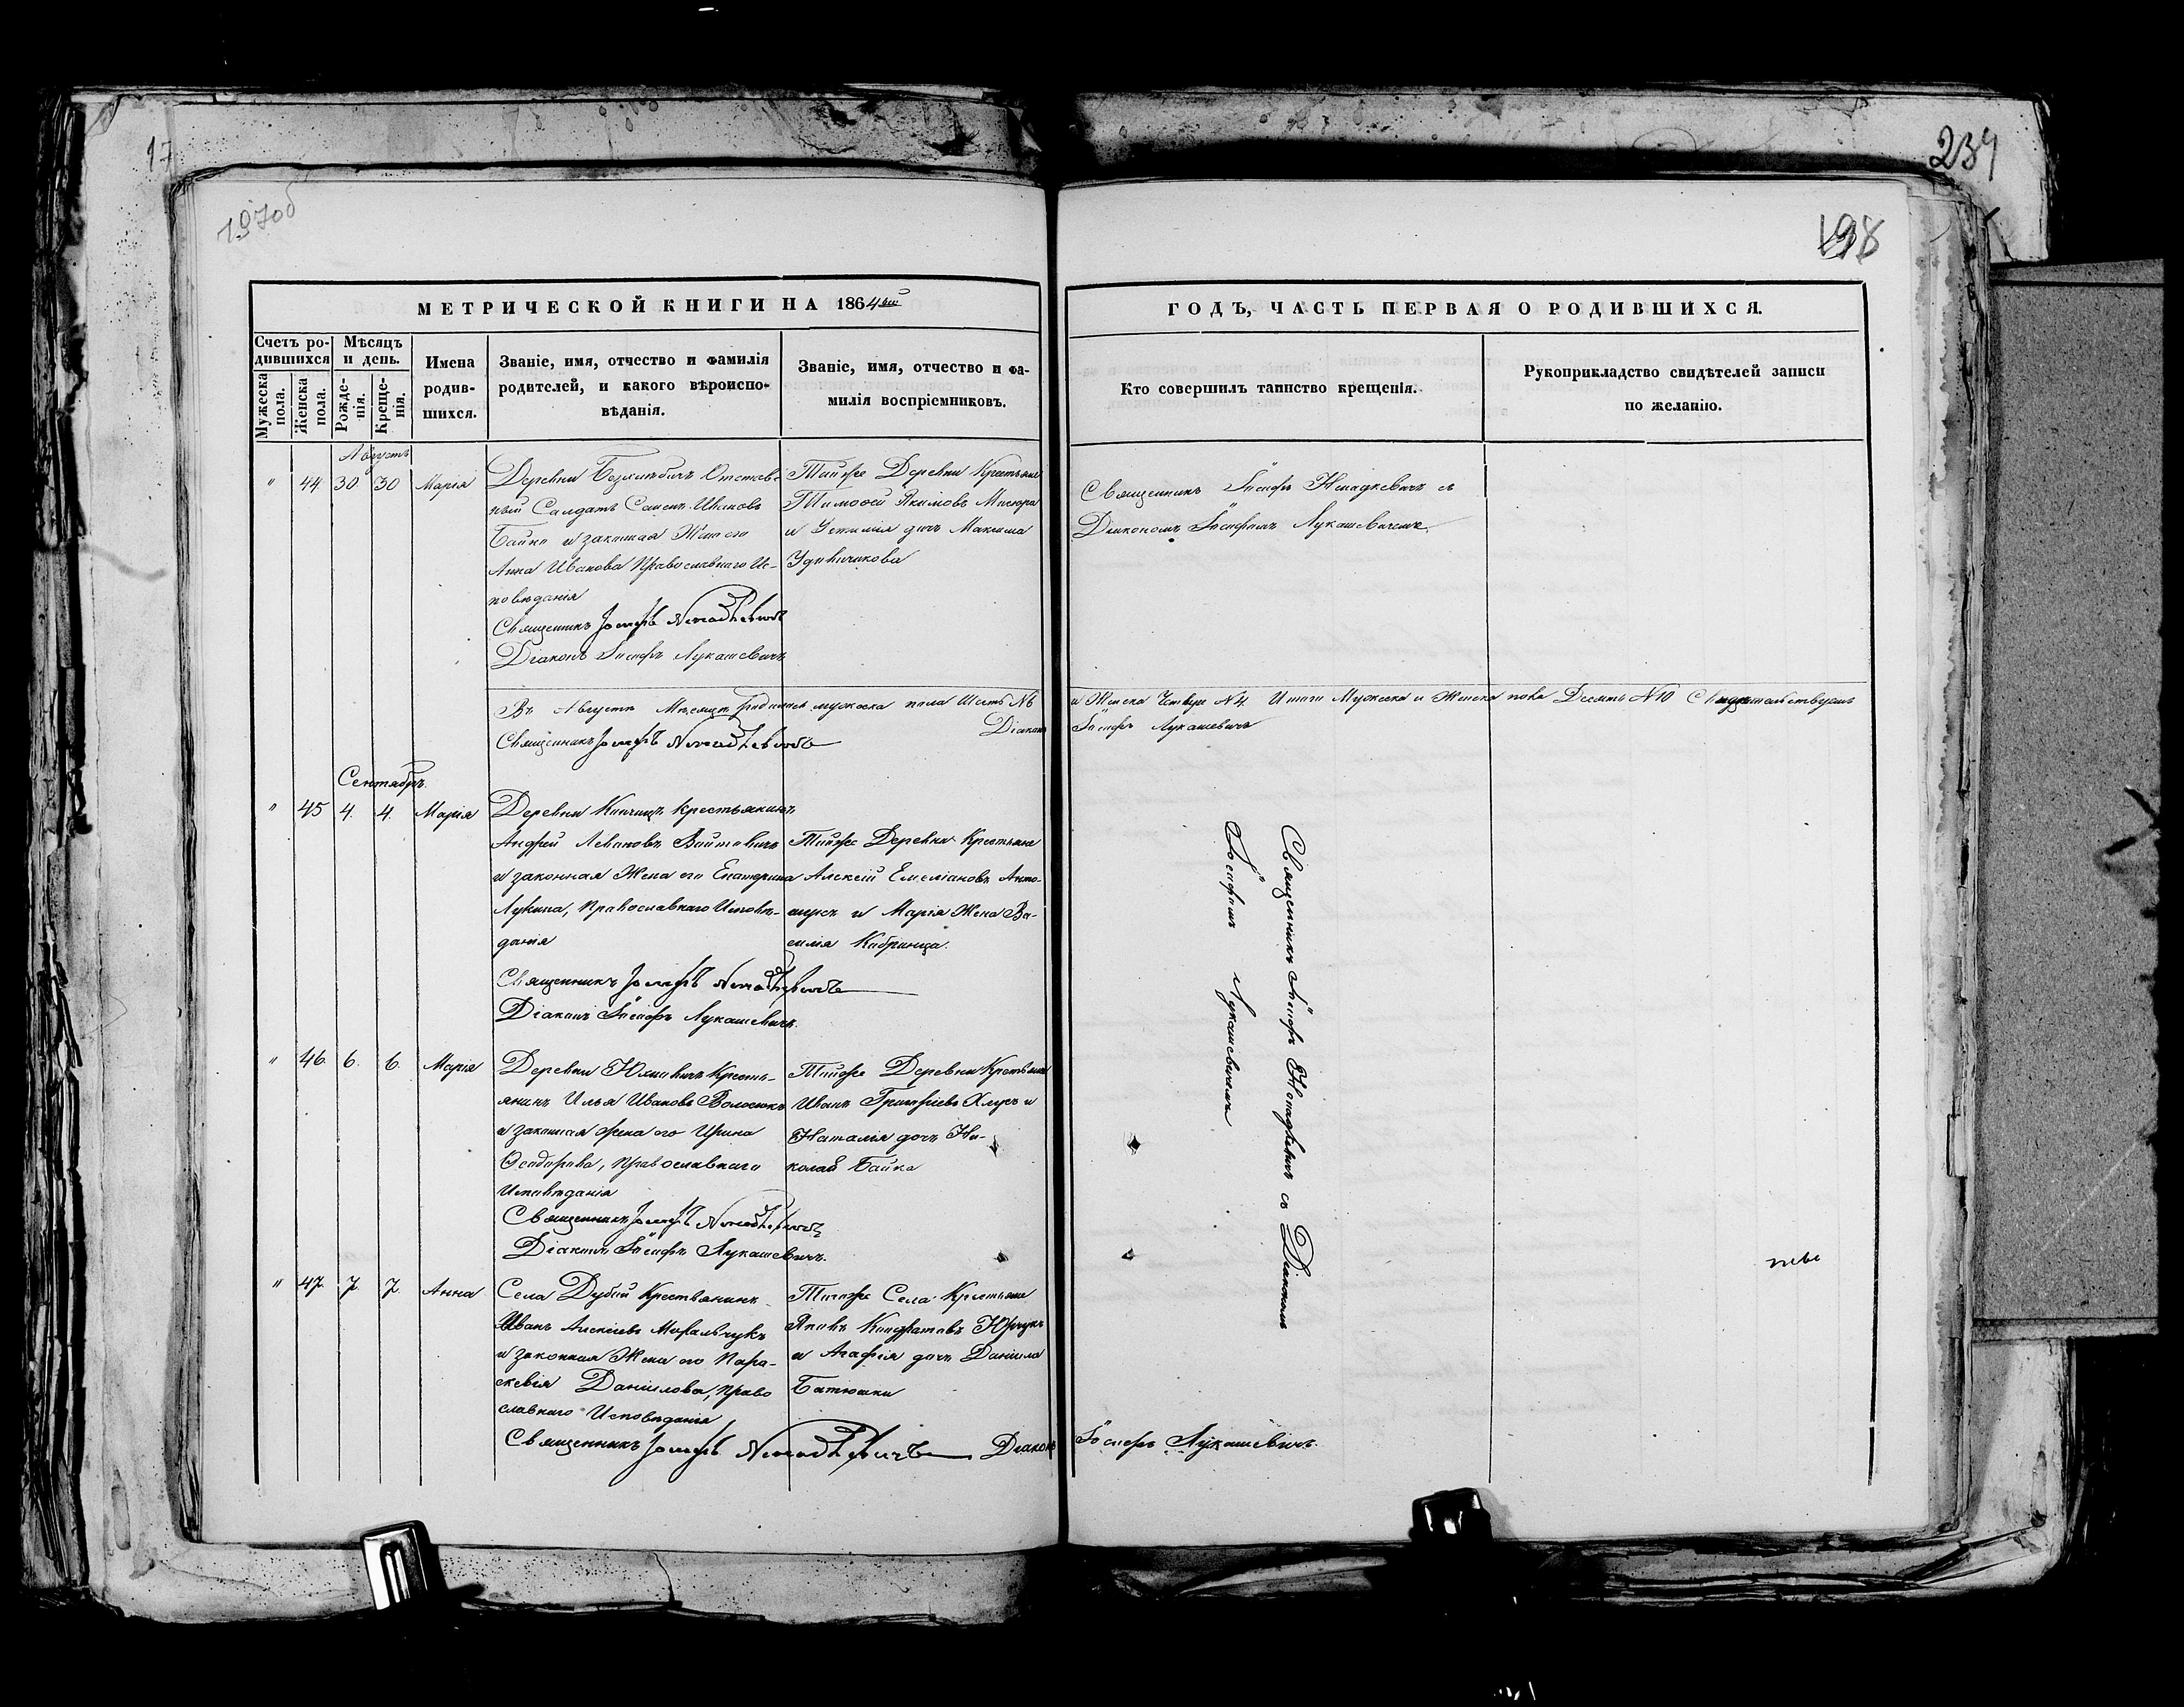 17
239
197об
198
МЕТРИЧЕСКОЙ КНИГИ НА 1864ый
ГОДЪ, ЧАСТЬ ПЕРВАЯ О РОДИВШИХСЯ.
Счетъ ро-
дившихся
Мѣсяцъ
и день.
Мужеска
пола.
Женска
пола.
Рожде-
нія.
Креще-
нія.
Имена
родив-
шихся.
Званіе, имя, отчество и фамилія
родителей, и какого вѣроиспо-
вѣданія.
Званіе, имя, отчество и фа-
милія воспріемниковъ.
Кто совершилъ таинство крещенія.
Рукоприкладство свидѣтелей записи
по желанію.
Августъ
" 44 30 30 Марія
Деревни Отстав-
ный Салдатъ Ивановъ
Байко и законная Жена его
Анна Иванова Православнаго Ис-
повѣданія
Священникъ Іосифъ
Діаконъ Іосифъ Лукашевичъ
Тойже Деревни Крестьяне
Тимофей Якимовъ Мисюра
и дочь Максима
Священникъ Іосифъ съ
Діакономъ Іосифомъ Лукашевичемъ.
Въ Августѣ Мѣсяцѣ родилось мужеска пола Шесть №6
и Женска Четыре №4. Итого Мужеска и Женска пола Десять №10 Свидетельствуемъ
Священникъ Іосифъ
Діаконъ Іосифъ Лукашевичъ
Сентябрь
" 45 4. 4. Марія
Деревни Крестьянинъ
Андрей Войтовичъ
и законная Жена его Екатерина
Лукина, Православнаго Исповѣ-
данія
Священникъ Іосифъ
Діаконъ Іосифъ Лукашевичъ.
Тойже Деревни Крестьяне
Алексій Емеліановъ Анто-
и Марія Жена Ва-
силія Кобринца.
Священникъ Іосифъ съ Діакономъ
Іосифомъ Лукашевичемъ
" 46 6. 6. Марія
Деревни Крестья-
янинъ Илья Ивановъ Волосюкъ
и законная жена его Ирина
православнаго
Исповѣданія
Священникъ Іосифъ
Діаконъ Іосифъ Лукашевичъ.
Тойже Деревни Крестьяне
Иванъ Григоріевъ и
Наталія дочь Ни-
колая Байка
" 47. 7. 7. Анна
Села Дубой Крестьянинъ
Иванъ Алексіевъ
и законная Жена его Пара-
скевія Даніилова, право
славнаго Исповѣданія
Священникъ Іосифъ
Тогоже Села Крестьяне
Яковъ Кондратовъ Юрчукъ
и Агафія дочь Даніила
Батюшки
Діаконъ Іосифъ Лукашевичъ.